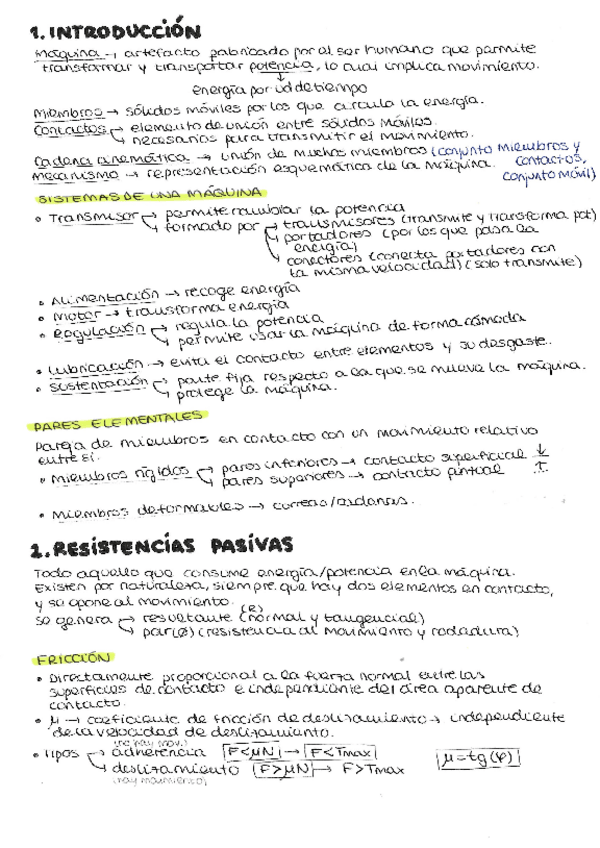 1. INTRODUCCIÓN
Máquina → artefacto fabricado por el ser humano que permite
transformar y transportar potencia, lo cual implica movimiento.
energía por ud de tiempo
Miembros → sólidos móviles por los que circula la energía.
Contactos → elemento de unión entre sólidos móviles.
→ necesarios para transmitir el movimiento.
Cadena cinemática → unión de muchos miembros (conjunto miembros y
contactos,
conjunto móvil)
mecanismo → representación esquemática de la máquina.
SISTEMAS DE UNA MÁQUINA
• Transmisor → permite cambiar la potencia
→ formado por → transmisores (transmite y transforma pot)
→ portadores (por los que pasa la
energía)
→ conectores (conecta portadores con
la misma velocidad) (solo transmite)
• Alimentación → recoge energía
• Motor → transforma energía
• Regulación → regula la potencia
→ permite usar la máquina de forma cómoda
• Lubricación → evita el contacto entre elementos y su desgaste.
• Sustentación → parte fija respecto a la que se mueve la máquina.
→ protege la máquina.
PARES ELEMENTALES
Pareja de miembros en contacto con un movimiento relativo
entre sí.
• Miembros rígidos → pares inferiores → contacto superficial ↓
→ pares superiores → contacto puntual ↑
• Miembros deformables → correas/cadenas.
2. RESISTENCIAS PASIVAS
Todo aquello que consume energía/potencia en la máquina.
Existen por naturaleza, siempre que hay dos elementos en contacto,
y se opone al movimiento.
Se genera → resultante (R) (normal y tangencial)
→ par(ø) (resistencia al movimiento y rodadura)
FRICCIÓN
• Directamente proporcional a la fuerza normal entre las
superficies de contacto e independiente del área aparente de
contacto.
• μ → coeficiente de fricción de deslizamiento → independiente
de la velocidad de deslizamiento.
(no hay mov.)
• Tipos → adherencia F<μN → F<Tmax
→ deslizamiento F>μN → F>Tmax
μ=tg(φ)
(hay movimiento)